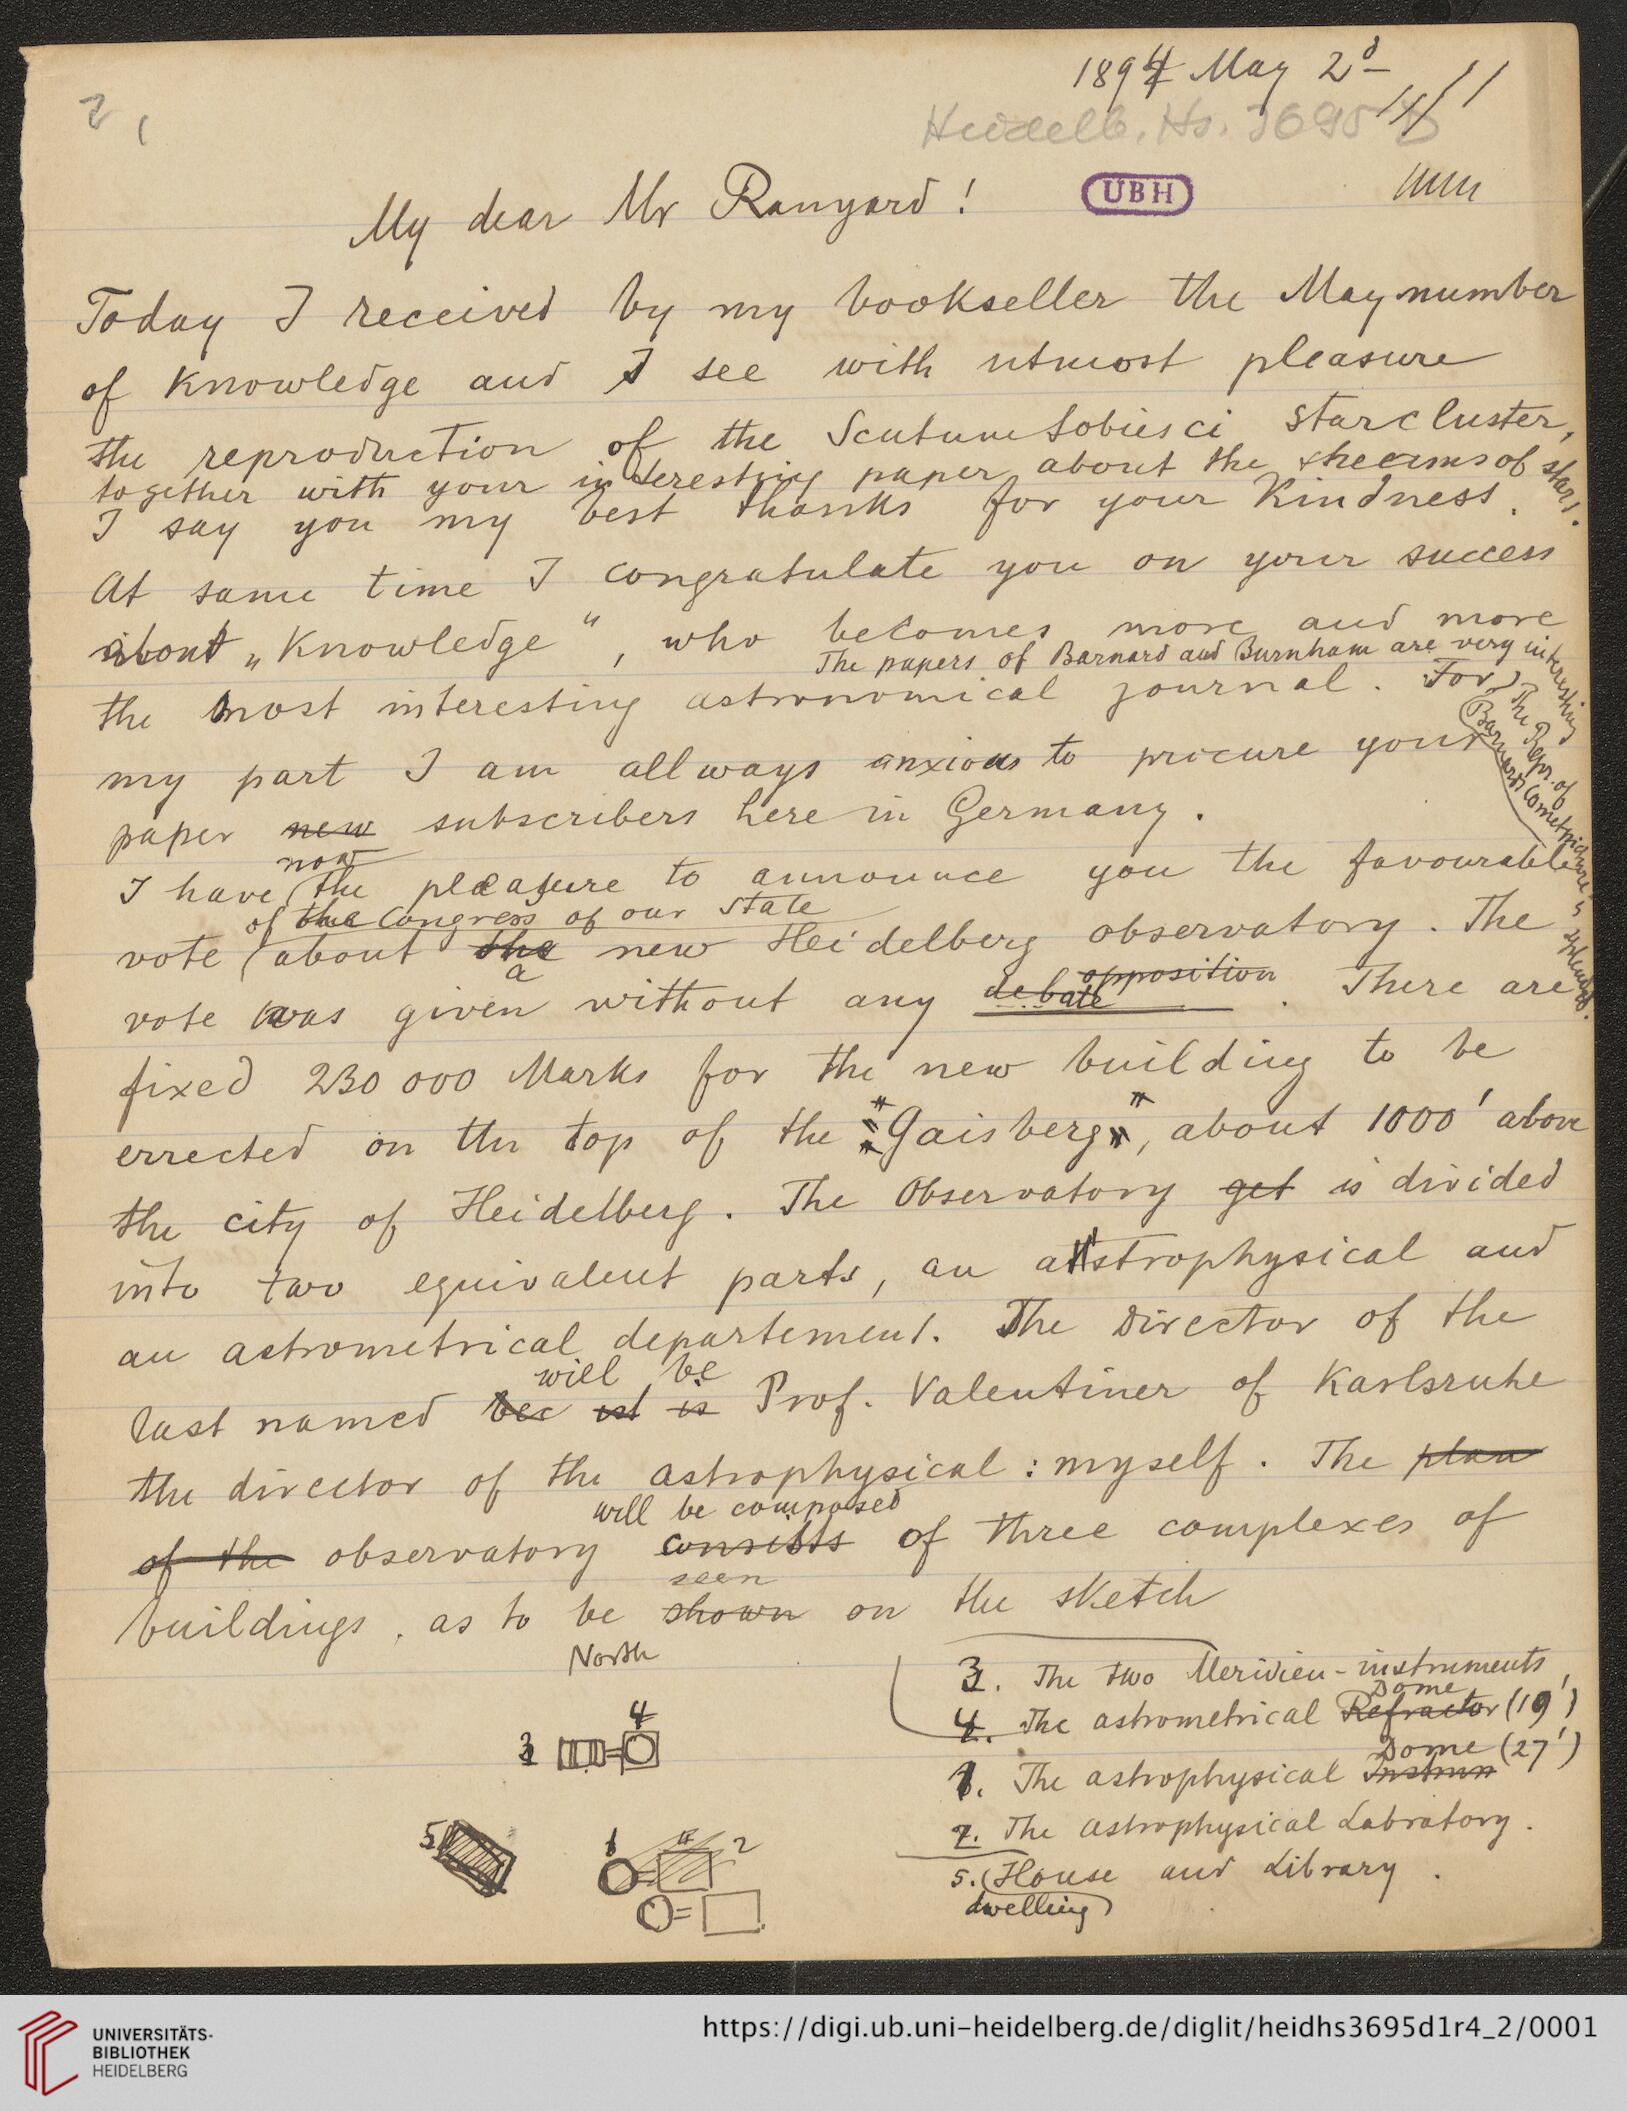 1894 May 2d
Heidelb. Hs. 3695
2
1
My dear Mr Ranyard!
UBH
Today I received by my bookseller the May number
of Knowledge and I see with utmost pleasure
the reproduction of the Scutum Sobiesci starcluster,
together with your interesting paper about the streams of stars.
I say you my best thanks for your Kindness.
At same time I congratulate you on your success
about „Knowledge", who becomes more and more
The papers of Barnard and Burnham are very interesting
The Repr. of Barnards Cometpictures is splendid.
the most interesting astronomical journal. For
my part I am allways anxious to procure your
paper new subscribers here in Germany.
now
I have the pleasure to announce you the favourable
of the Congress of our State
vote about the new Heidelberg observatory. The
a
vote was given without any debate opposition. There are
fixed 230 000 Marks for the new building to be
errected on the top of the "Gaisberg", about 1000' above
the city of Heidelberg. The Observatory get is divided
into two equivalent parts, an astrophysical and
an astrometrical departement. The Director of the
will be
last named bec ist is Prof. Valentiner of Karlsruhe
the director of the astrophysical: myself. The plan
will be composed
of the observatory consists of three complexes of
seen
buildings, as to be shown on the sketch
North
3. The two Meridien-instruments,
Dome
4. The astrometrical Refractor (19')
Dome (27')
1. The astrophysical Instrum
2. The astrophysical Labratory.
5. House and Library.
dwelling
4
3
5
1
2
UNIVERSITÄTS-
BIBLIOTHEK
HEIDELBERG
https://digi.ub.uni-heidelberg.de/diglit/heidhs3695d1r4_2/0001